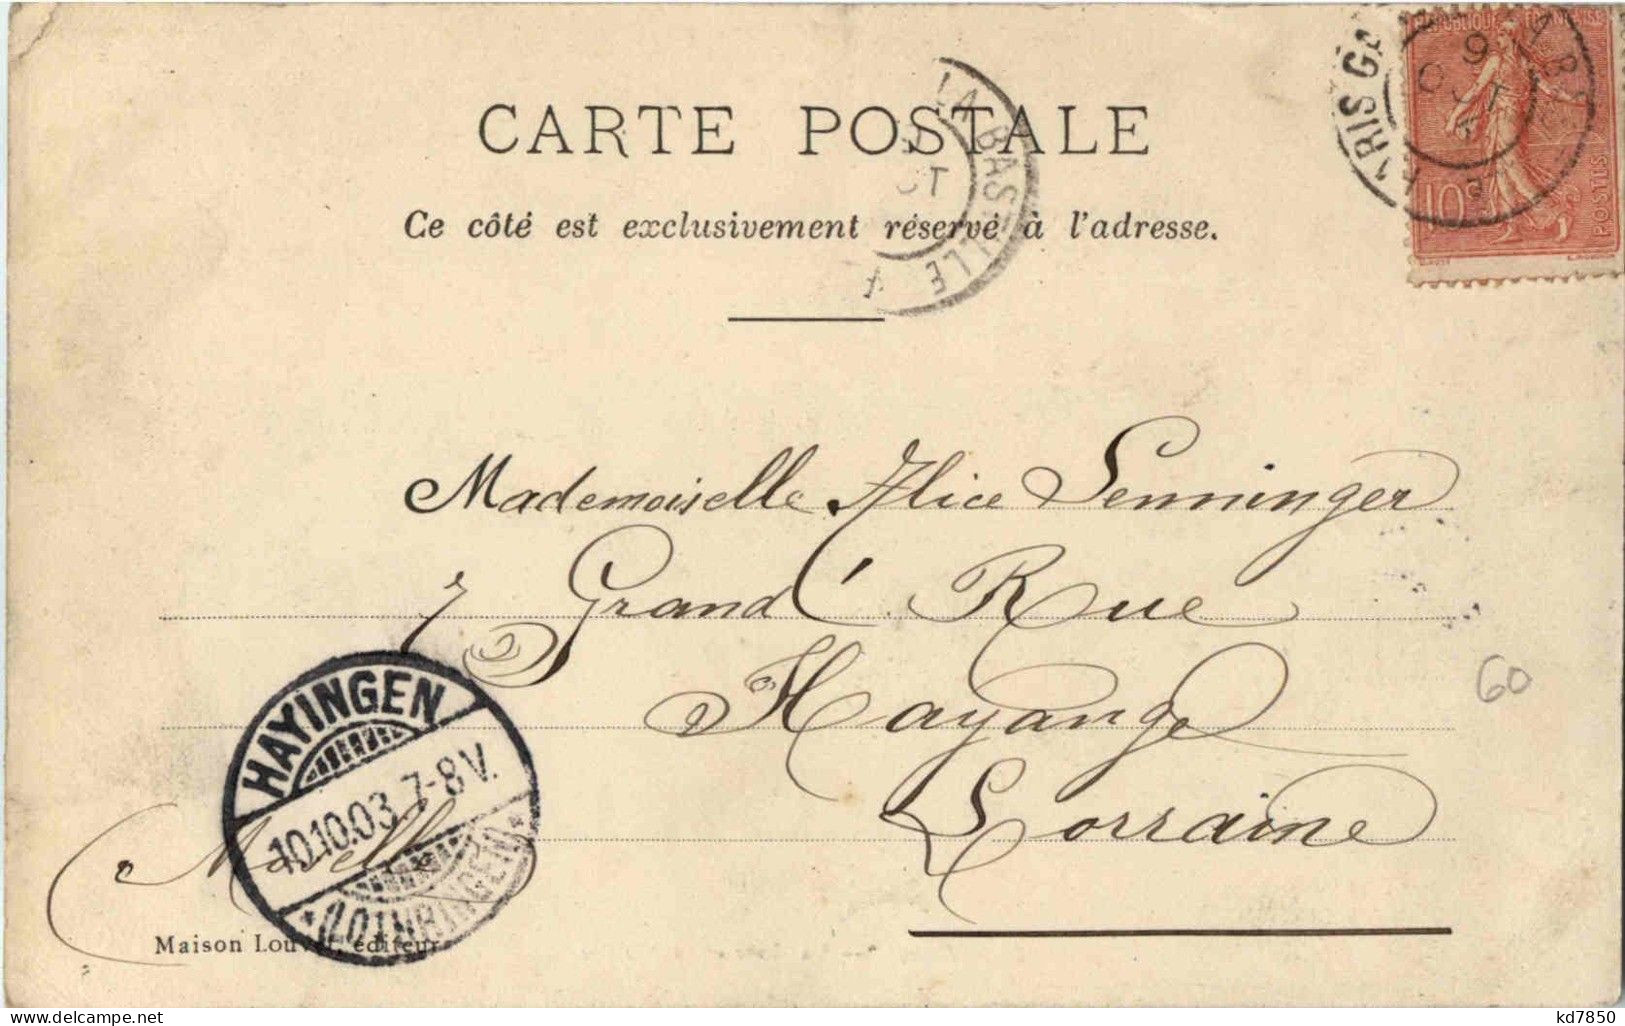 RÉPUBLIQUE FRANÇAISE
PARIS GA
9
OCT
10
POSTES
CARTE POSTALE
LA BASTILLE
Ce côté est exclusivement réservé à l'adresse.
Mademoiselle Alice Senninger
7 Grand' Rue
Hayange
Lorraine
60
HAYINGEN
10.10.03. 7-8 V.
(LOTHRINGEN)
Maison Louvet, éditeur
kd7850